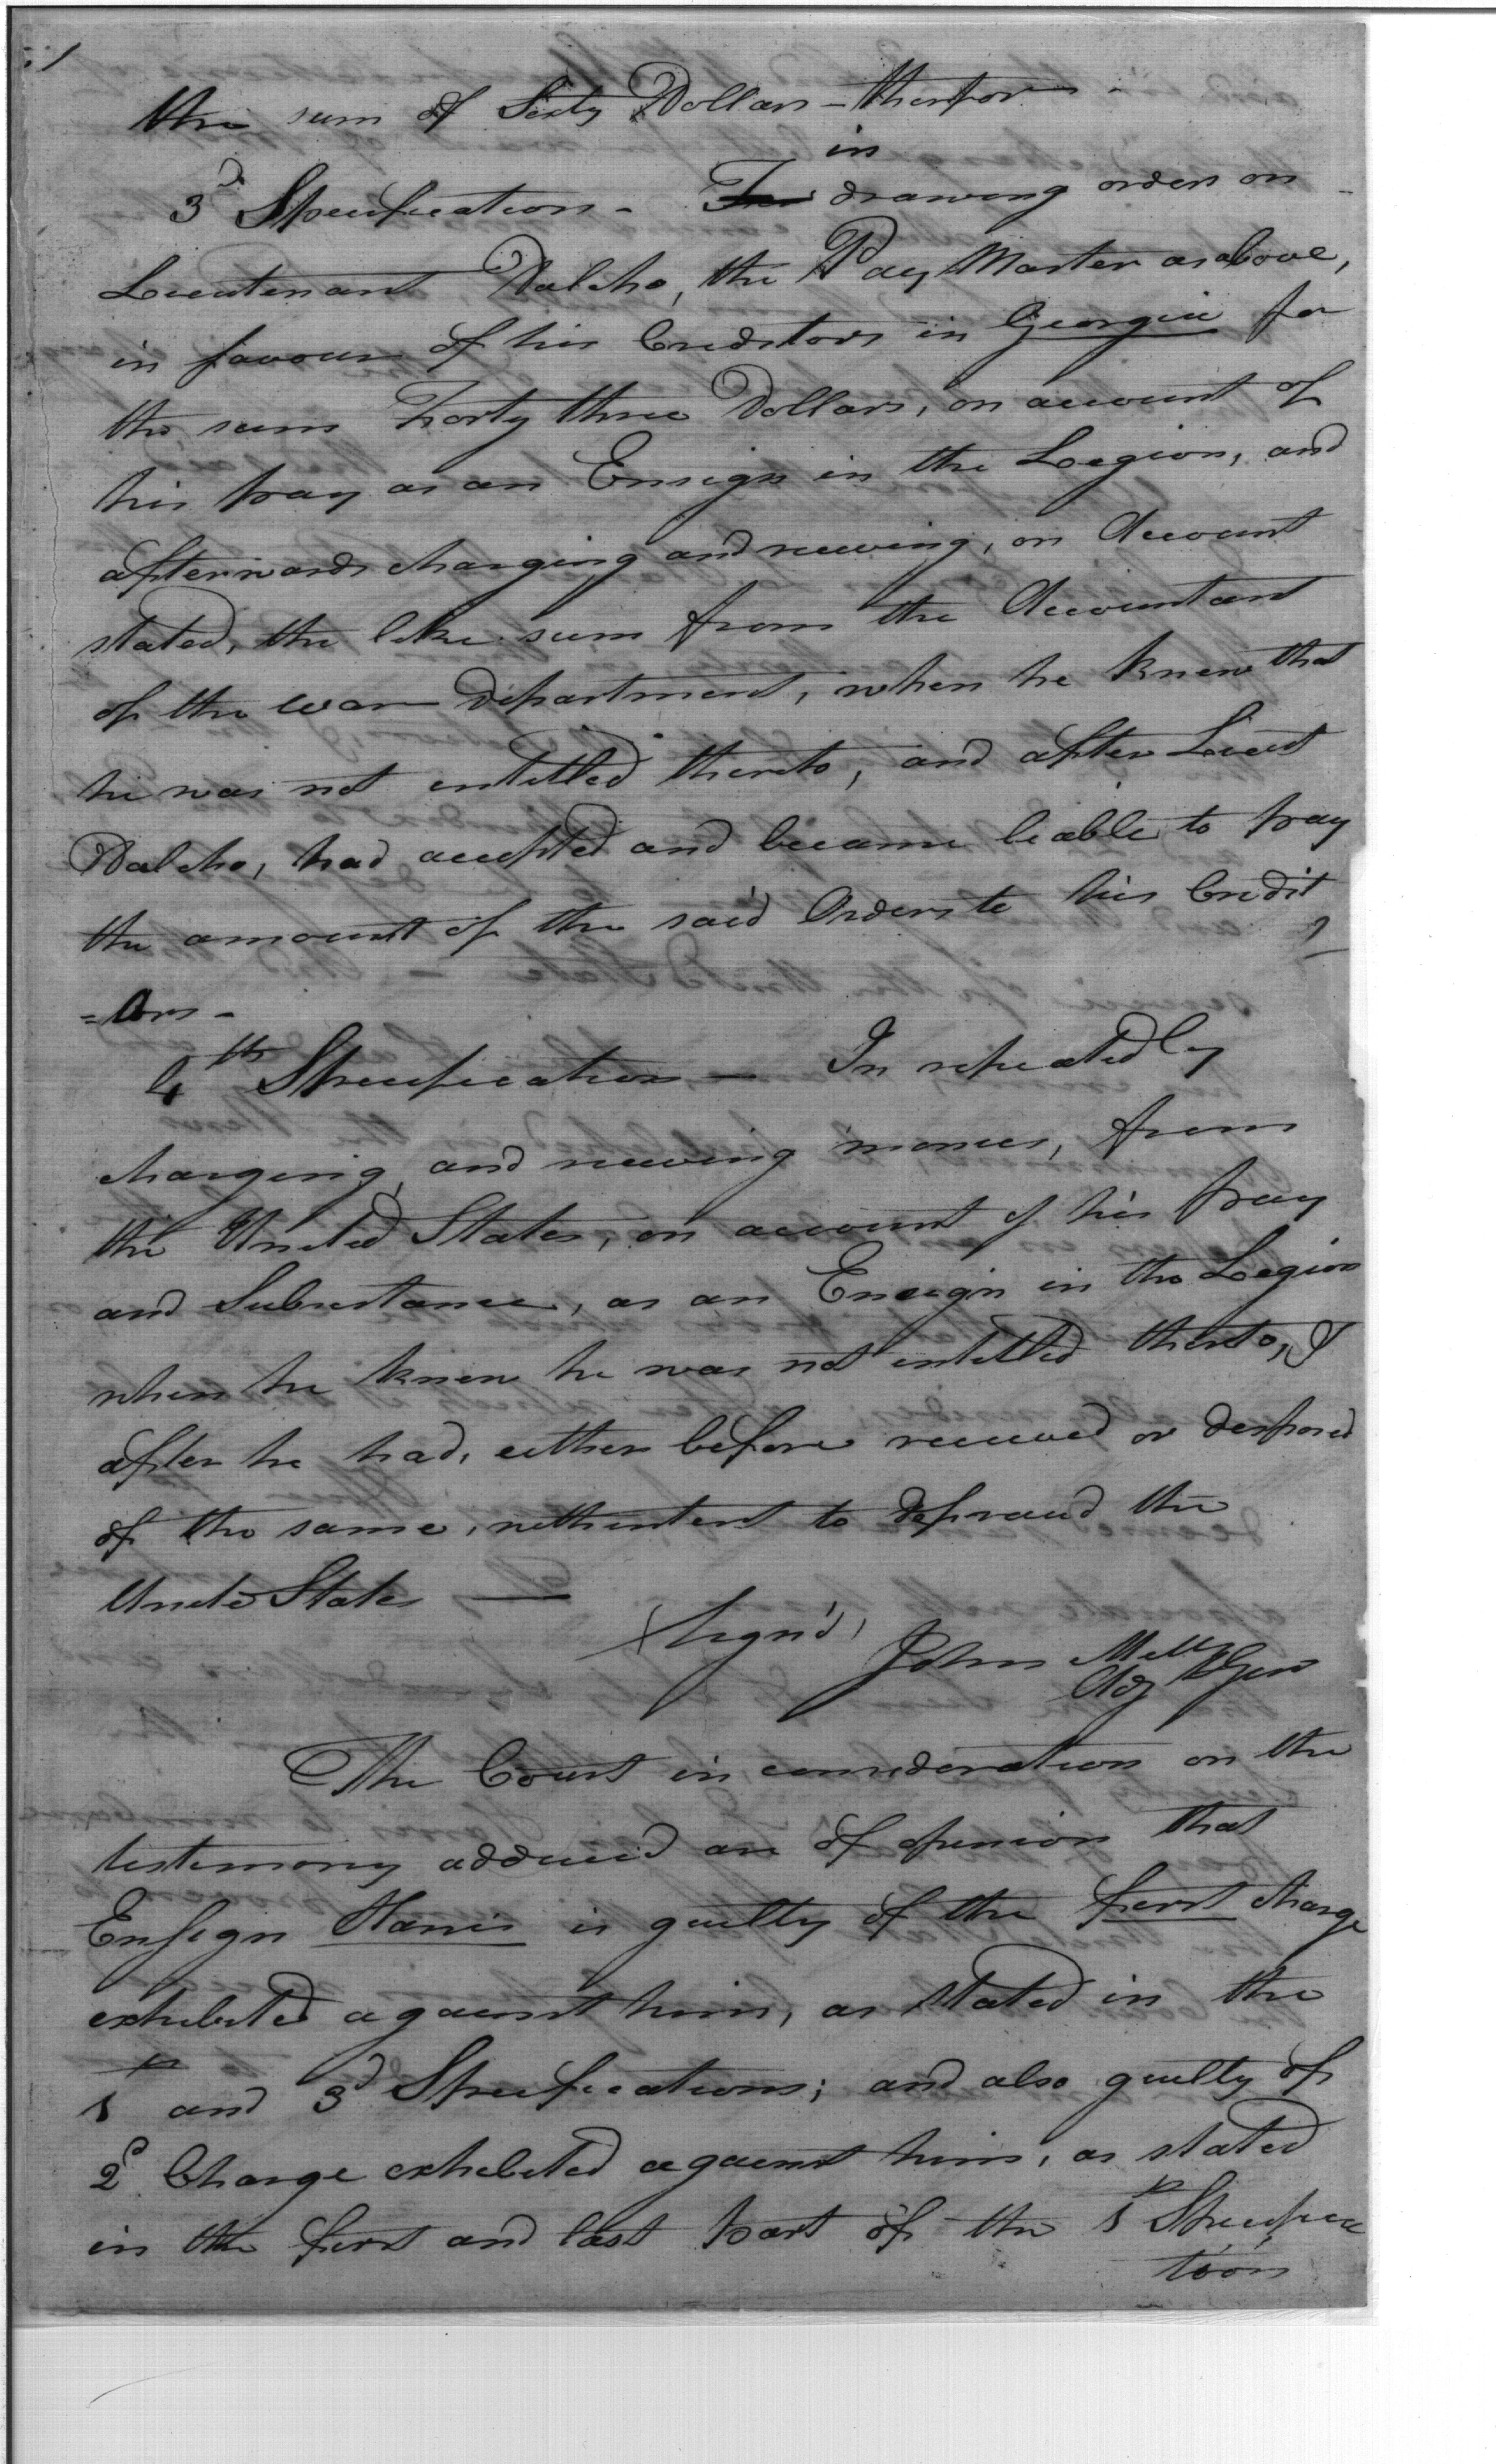 the sum of Sixty Dollars - therefor -
in
3d Specification - For drawing orders on -
Lieutenant Dalcho, the Pay Master as above,
in favour of his Creditors in Georgia for
the sum Forty three Dollars, on account of
his pay as an Ensign in the Legion, and
afterwards charging and receiving, on Account
stated, the like sum from the Accountant
of the war department, when he knew that
he was not entitled thereto, and after Lieut
Dalcho, had accepted and became liable to pay
the amount of the said Orders to his Credit
=tors -
4th Specification - In repeatedly
charging, and receiving monies, from
the United States, on account of his pay
and Subsistance, as an Ensign in the Legion
when he knew he was not entitled thereto, &
after he had, either before received or disposed
of the same, with intent to defraud the
United States —
(Signd)
John Mills
Adj Gen
The Court in consideration on the
testimony adduced are of opinion that
Ensign Harris is guilty of the first charge
exhibited against him, as stated in the
1st and 3d Specifications; and also guilty of
2d Charge exhibited against him, as stated
in the first and last part of the 1st Specifica
tion